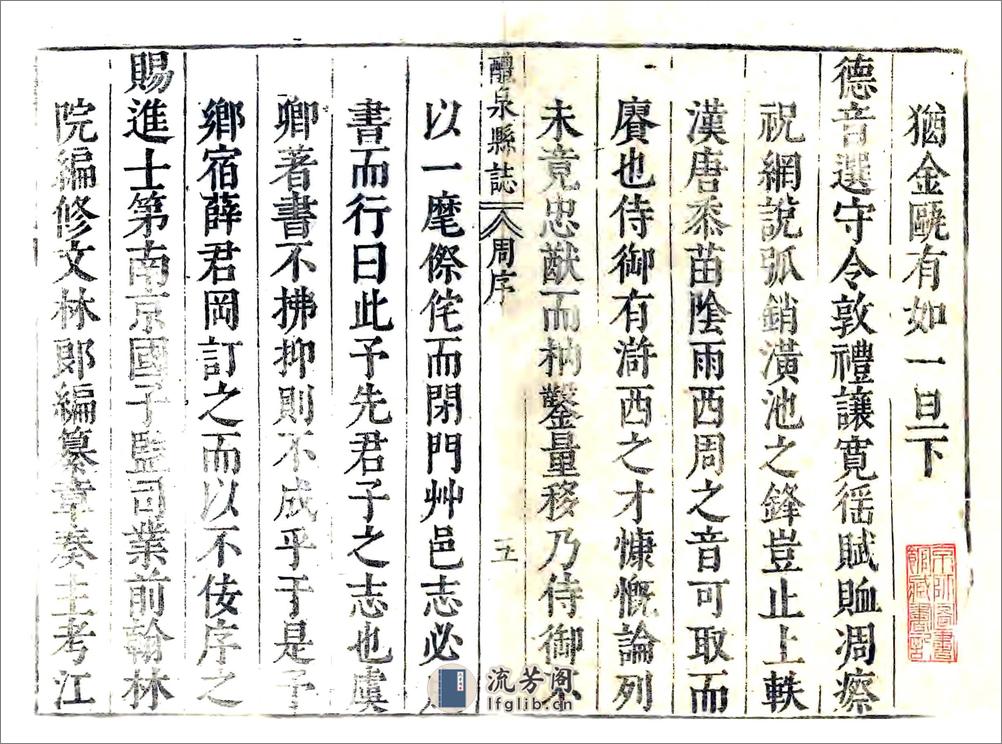 猶金甌有如一旦下
德音選守令敦禮讓寬徭賦䘏凋瘵
祝網說弧銷潢池之鋒豈止上軼
漢唐黍苗陰雨西周之音可取而
賡也侍御有滸西之才慷慨論列
未竟忠猷而枘鑿量移乃侍御
醴泉縣誌 周序 五
以一麾傺侘而閉門艸邑志必
書而行曰此予先君子之志也虞
卿著書不拂抑則不成乎于是予
鄉宿薛君岡訂之而以不佞序之
賜進士第南京國子監司業前翰林
院編修文林郎編纂章奏主考江
京師圖書館藏書記
流芳阁
lfglib.cn